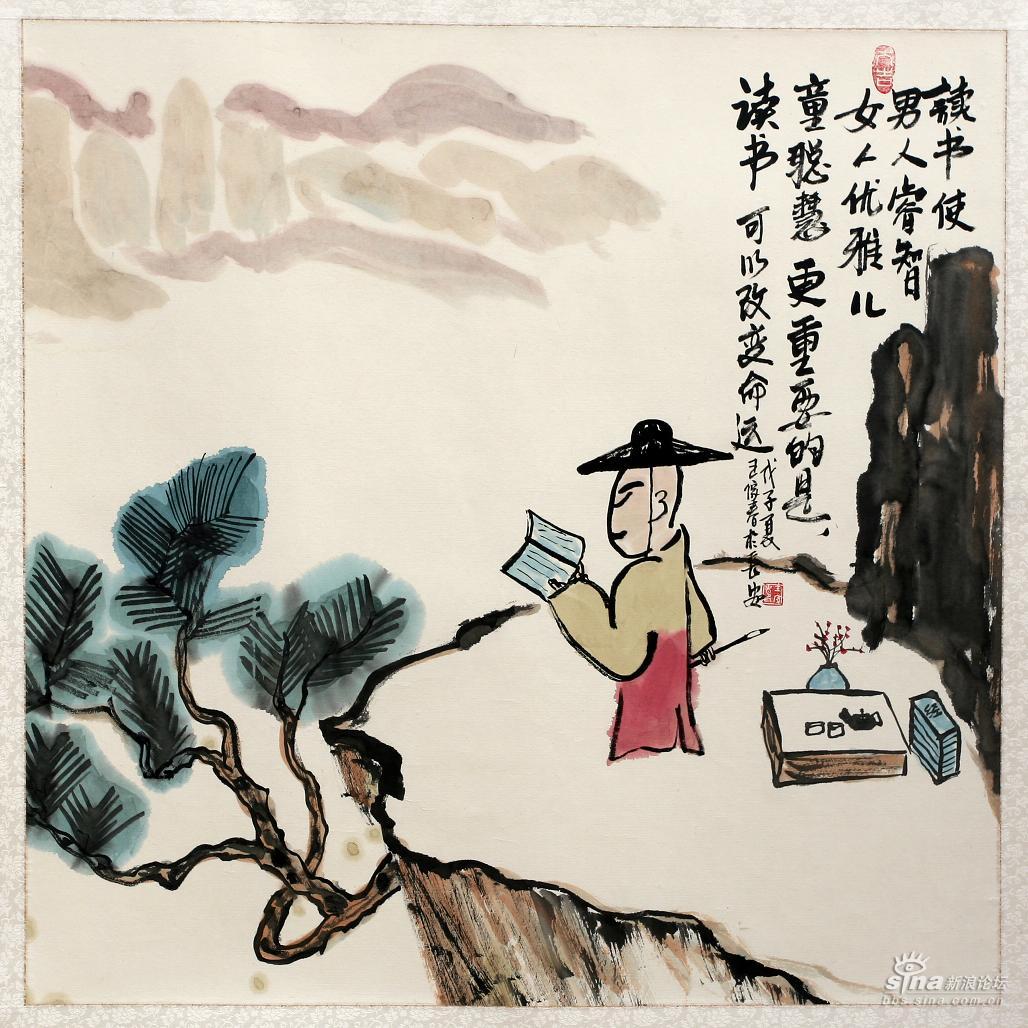 讀书使
男人睿智
女人优雅儿
童聪慧 更重要的是、
读书 可以改变命运
戊子夏
王春於长安
经
sina新浪论坛
bbs.sina.com.cn